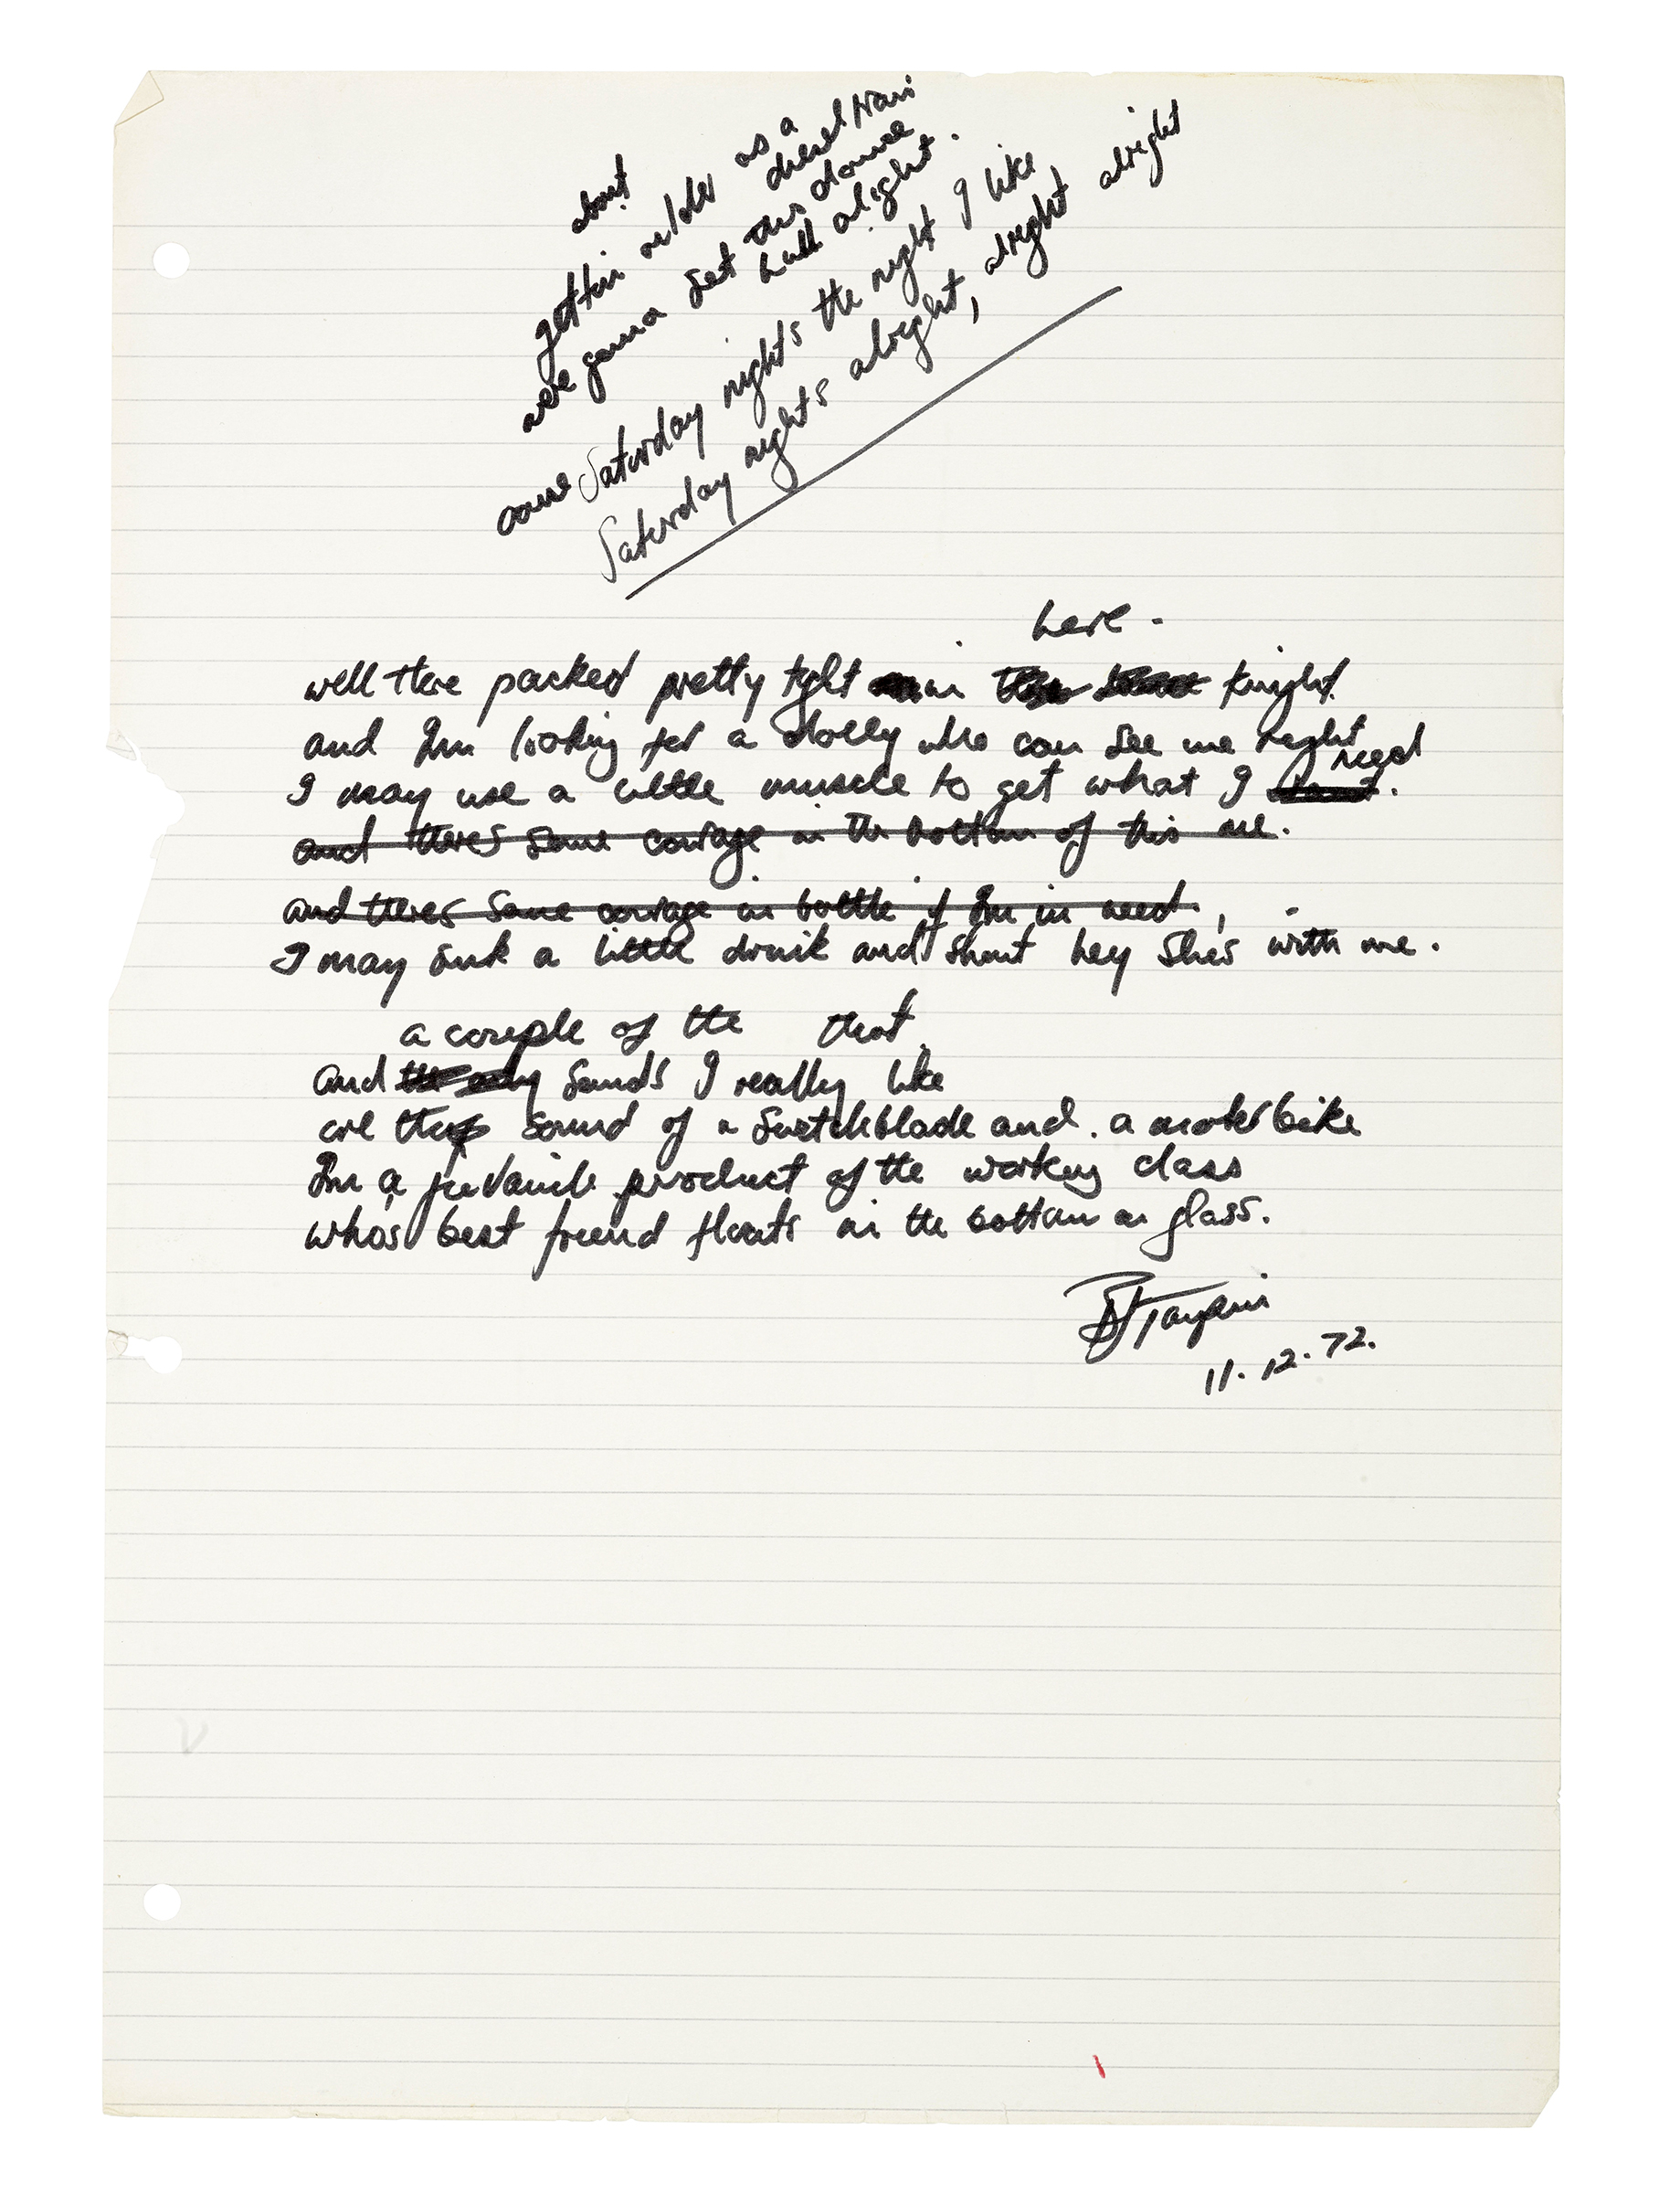 about
gettin as a
oiled diesel train
were gonna set this dance
hall alight.
cause Saturday nights the night I like
Saturday nights alright, alright alright
here.
well there packed pretty tight in tonight.
and Im looking for a dolly who can see me right
I may use a little muscle to get what I need.
and theres some courage in the bottom of this one.
and theres some courage in bottle if Im in need.
I may sink a little drink and shout hey she's with me.
a couple of the that
and sounds I really like
are the sound of a switchblade and a motorbike
Im a juvanile product of the working class
who's best friend floats in the bottom on glass.
BJTaupin
11.12.72.